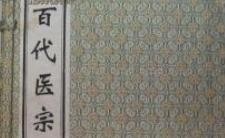 百代医宗